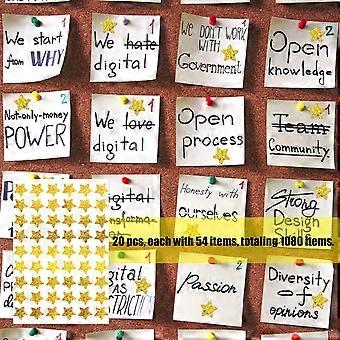 We start
from WHY
1
We hate
digital
We DON'T WORK
WITH
Government
2
Open
knowledge
2
Not-only-money
POWER
We love
digital
1
Open
process
1
Team
Community
digital
Honesty with
ourselves
Strong
Design
Skills
20 pcs, each with 54 items, totaling 1080 items.
Passion
Diversity
of
opinions